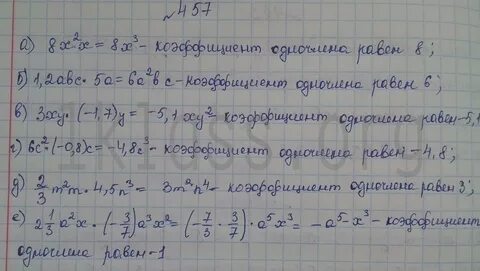 №457
а) 8x²x = 8x³ - коэффициент одночлена равен 8;
б) 1,2abc · 5a = 6a²bc - коэффициент одночлена равен 6;
в) 3xy · (-1,7)y = -5,1xy² - коэффициент одночлена равен -5,1
г) 6c² · (-0,8)c = -4,8c³ - коэффициент одночлена равен -4,8;
д) 2/3 m²m · 4,5n³ = 3m²n⁴ - коэффициент одночлена равен 3;
е) 2 1/3 a²x · (-3/7)a³x² = (-7/3 · 3/7) · a⁵x³ = -a⁵-x³ - коэффициент
одночлена равен -1